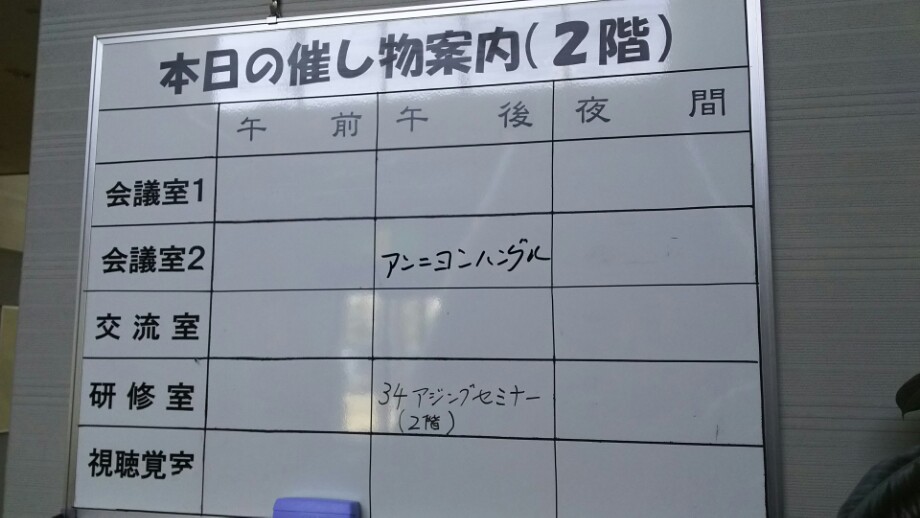 本日の催し物案内(2階)
午前 午後 夜間
会議室1
会議室2 アンニヨンハングル
交流室
研修室 34アジングセミナー
(2階)
視聴覚室